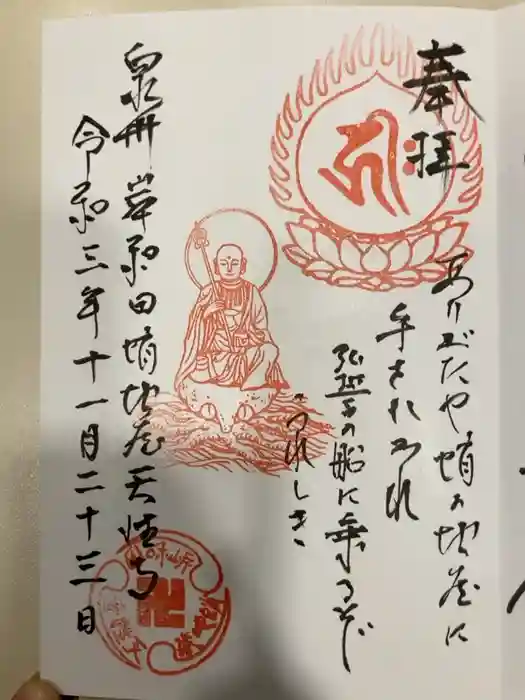 奉拝
ありがたや蛸の地蔵に
手をひかれ
弘誓の船に乗るぞ
うれしき
泉州岸和田蛸地蔵天性寺
令和三年十一月二十三日